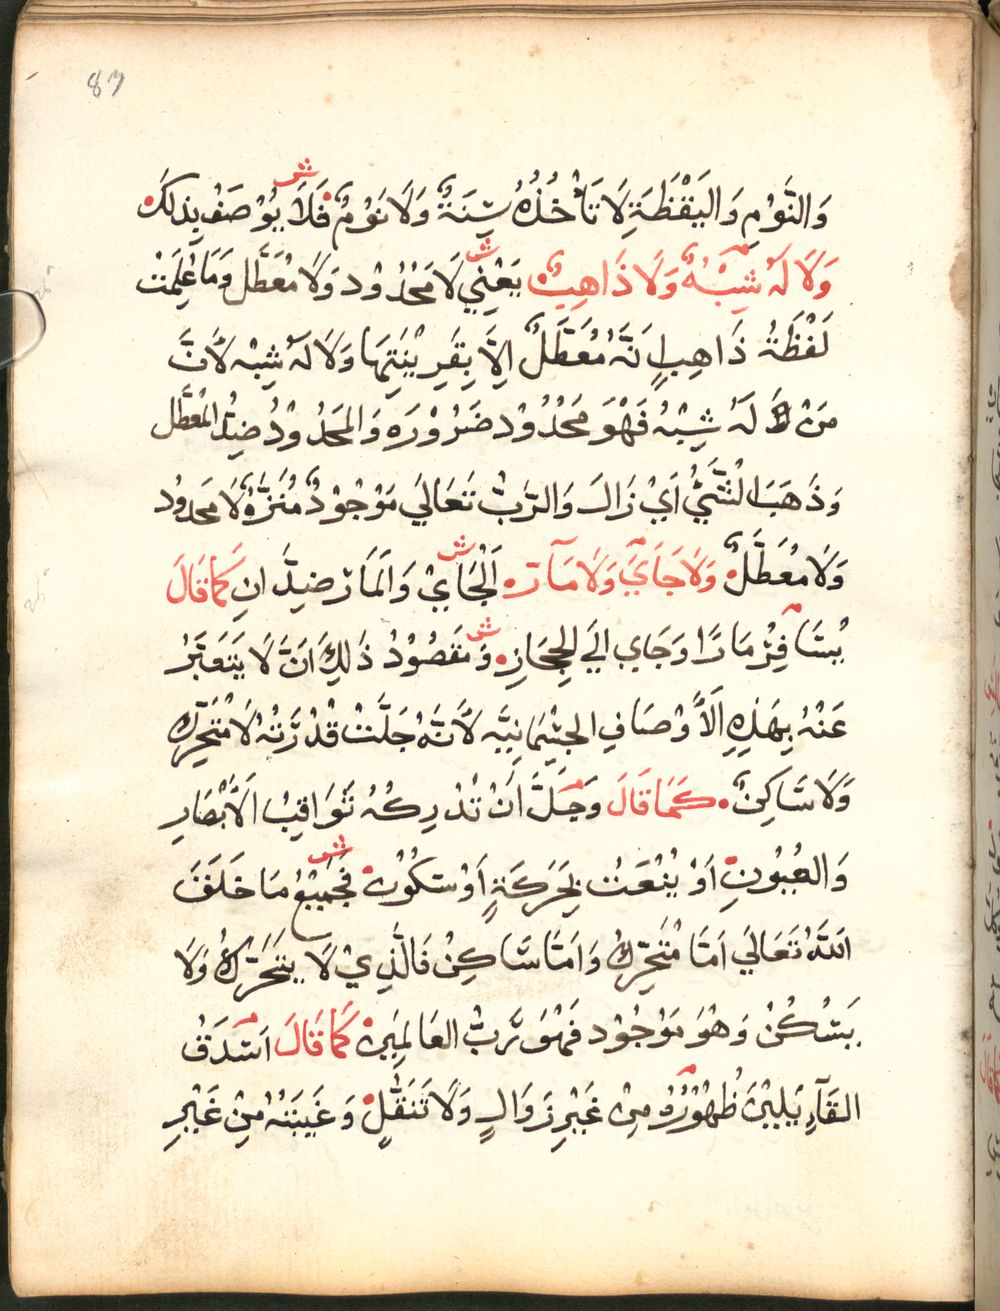 87
ش
وَالنَّوْمِ وَاليَقْظَةِ لَا تَأْخُذُهُ سِنَةٌ وَلَا نَوْمٌ فَلَا يُوْصَفْ بِذلَكَ
ش
وَلَا لَهُ شِبْهٌ وَلَا ذَاهِبٌ يَعْنِي لَا مَحْدُوْد وَلَا مُعَطَّل وَمَا عُلِمَتْ
لَفْظَةُ ذَاهِبٍ اَنَّهُ مُعَطَّلٌ اِلَّا بِقَرِيْنَتِهَا وَلَا لَهُ شِبْه لَانَّ
مَنْ لَهُ شِبْهُ فَهْوَ مَحْدُوْد ضَرُوْرَه وَالمَحْدُوْدُ ضِدُّ المُعَطَّل
وَذَهَبَ الْشَّيُّ اَيْ زَالَ وَالرَّبُّ تَعَالَي مَوْجُوْدٌ مُنَزَّهٌ لَا مَحدُود
ش
وَلَا مُعَطَّلٌ وَلَا جَايٍَ وَلَا مَآرّ اَلْجَايْ وَالمَارّ ضِدَّانِ كَمَا قَالَ
ش
يُسَافِرْ مَارًا وَجَاي الَي الحِجَازِ وَمَقصُوْدُ ذَلِكَ اَنَّ لَا يَتَعَبَّرُ
عَنْهُ بِهَذِهِ الاَوْصَافِ الجِسْمَانِيَّه لَانَّهُ جَلَّتْ قُدْرَتُهُ لَا مُتَحَرِّكٌ
وَلَا سَّاكِنٌ كَمَا قَالَ وَجَلَّ اَنْ تُدْرِكُهُ ثَوَاقِبُ الاَبْصَارِ
ش
وَالعُيُونِ اَوْ يُنْعَتُ بِحَرَكَةٍ اَوْ سُكُوْن فَجَمِيْعُ مَا خَلَقَ
اللهُ تَعَالَي اَمَّا مُتَحَرِّكٌ وَاَمَّا سَّاكِنْ فَالَّذِيْ لَا يَتَحَرَّكُ وَلَا
يَسْكُنْ وَهْوَ مَوْجُوْد فَهْوَ رَّبُّ العَالَمِيْنَ كَمَا قَالَ اَسْدَقُ
القَآئِلِيْنَ ظُهُوْرُهُ مِنْ غَيْرِ زَوَالٍ وَلَا تَنَقُّلٍ وَغَيبَتُهُ مِنْ غَيْرِ